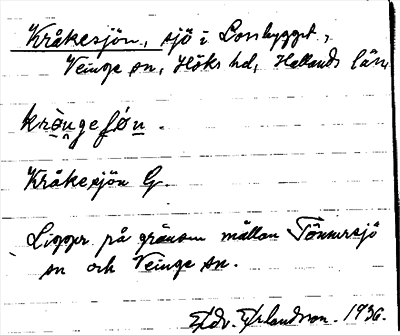 Kråkesjön, sjö i Lossbygget,
Veinge sn, Höks hd, Hallands län
kråŋgeʃøn.
Kråkesjön G.
Ligger på gränsen mellan Tönnersjö
sn och Veinge sn.
Edv. Erlandson. 1936.